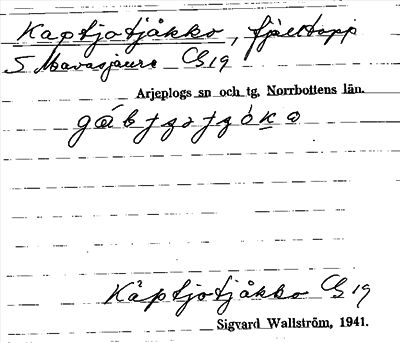 Kaptjotjåkko, fjälltopp
S Mavasjaure Cg 19
Arjeplogs sn och tg, Norrbottens län.
Kåptjotjåkko Cg 19
Sigvard Wallström, 1941.